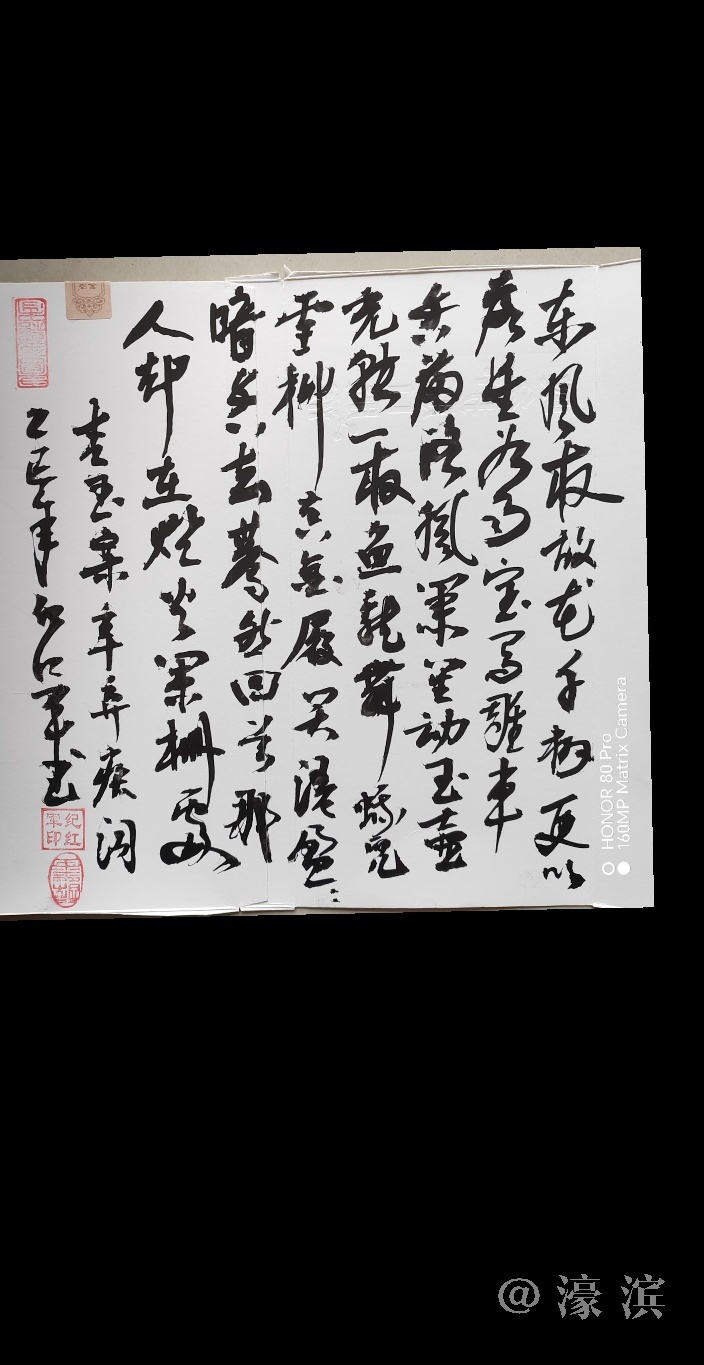 东风夜放花千树更吹
落星如雨宝马雕车
香满路凤箫声动玉壶
光转一夜鱼龙舞蛾儿
雪柳黄金缕笑语盈:
暗香去蓦然回首那
人却在灯火阑珊处
青玉案辛弃疾词
乙巳年纪红军书
纪红军印
HONOR 80 Pro
160MP Matrix Camera
@濠滨